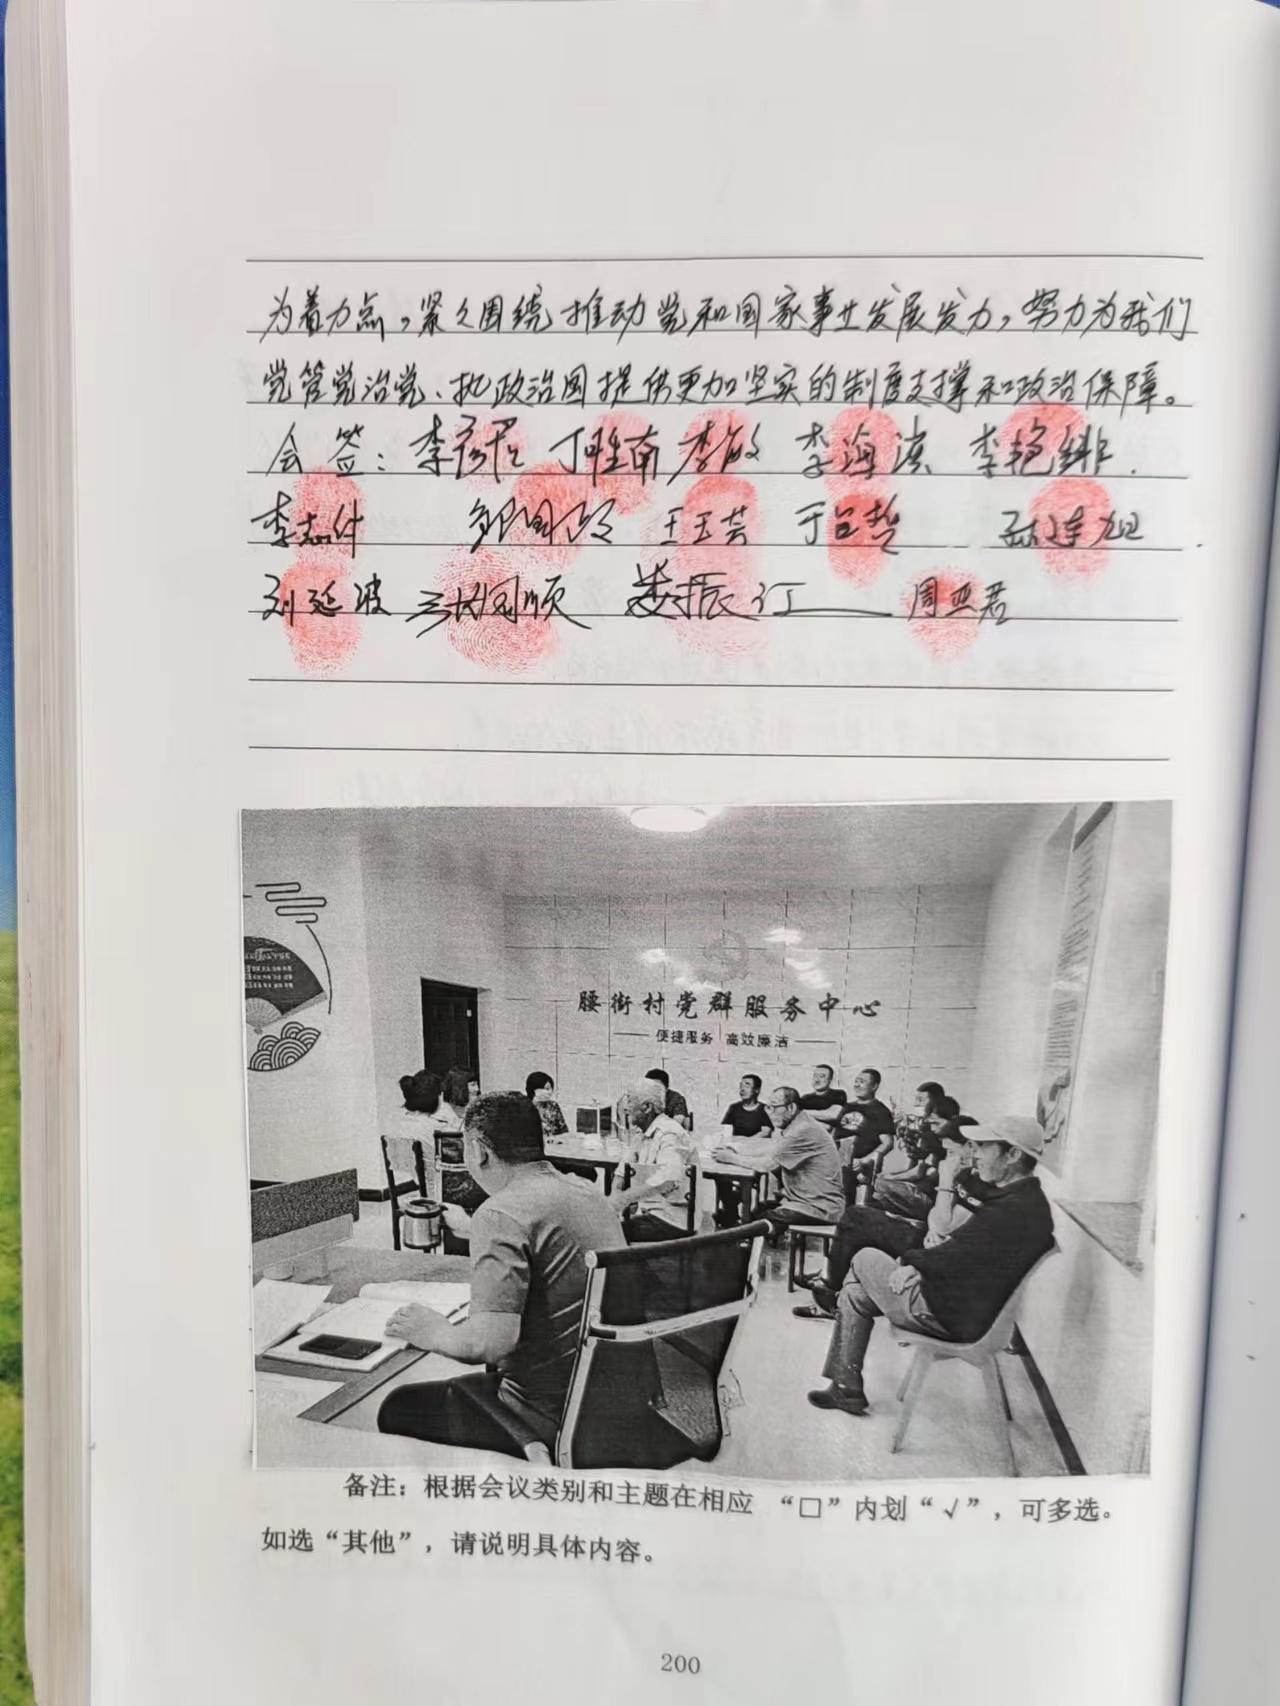 为着力点，紧々围绕推动党和国家事业发展发力，努力为我们
党管党治党、执政治国提供更加坚实的制度支撑和政治保障。
会签：李 丁胜南 李敏 李海滨 李艳
李志付 王玉芸 于 孙连旭
刘延波 张国顺 娄振江 周亚君
腰街村党群服务中心
便捷服务 高效廉洁
备注：根据会议类别和主题在相应 “□”内划“√”，可多选。
如选“其他”，请说明具体内容。
200